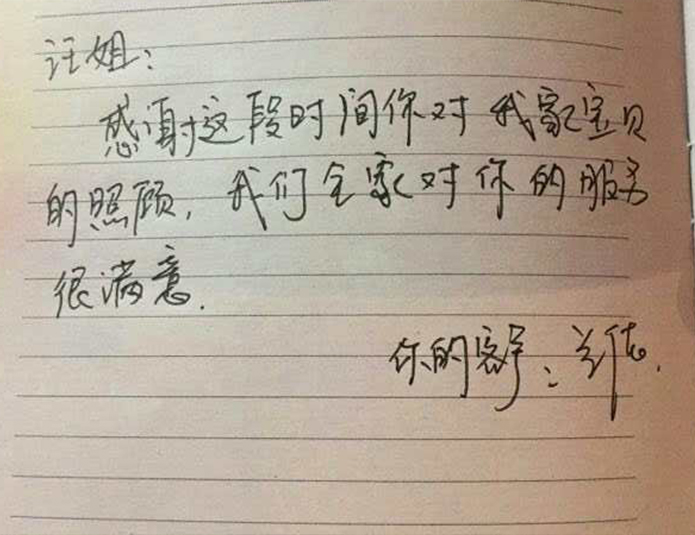 汪姐:
感谢这段时间你对我家宝贝
的照顾，我们全家对你的服务
很满意.
你的客户: